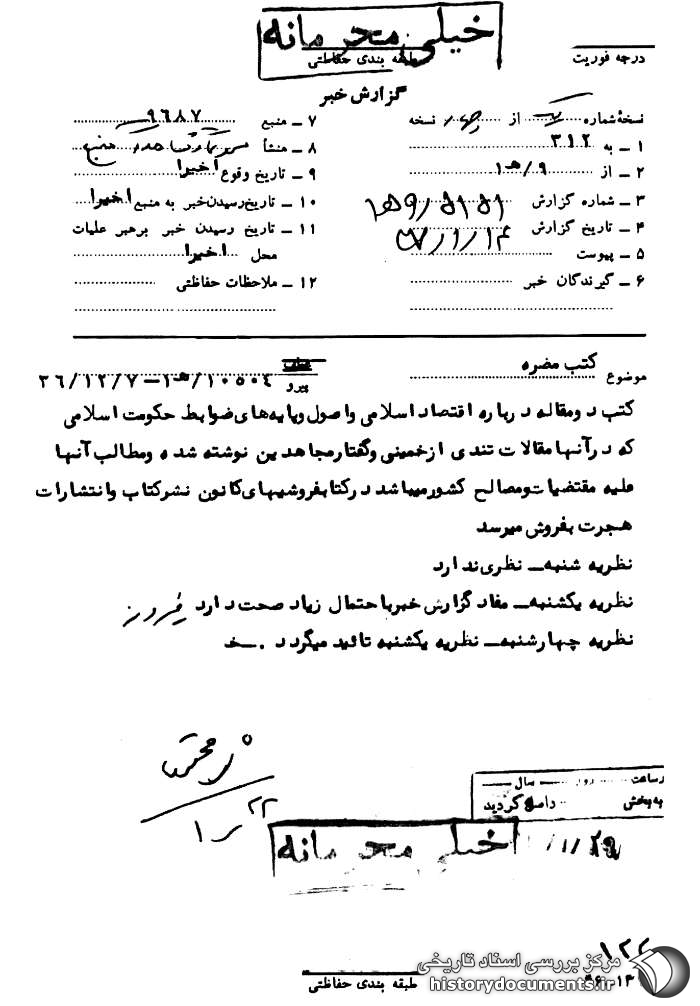 خیلی محرمانه
طبقه بندی حفاظتی
درجه فوریت
گزارش خبر
نسخهٔ شماره از نسخه
۱ ــ به ۳۱۲
۲ ــ از ۹/ه‍ ۱
۳ ــ شماره گزارش
۴ ــ تاریخ گزارش
۵ ــ پیوست
۶ ــ گیرندگان خبر
۷ ــ منبع ۹۶۸۷
۸ ــ منشأ
۹ ــ تاریخ وقوع اخیرا
۱۰ ــ تاریخ رسیدن خبر به منبع اخیرا
۱۱ ــ تاریخ رسیدن خبر برهبر عملیات
محل اخیرا
۱۲ ــ ملاحظات حفاظتی
موضوع کتب مضره
پیرو ۱۰۵۰۴/ه‍ ۱ــ۳۶/۱۲/۷
کتب د ومقاله د رباره اقتصاد اسلامی واصول وپایه‌های ضوابط حکومت اسلامی
که د رآنها مقالات تندی ازخمینی وگفتار مجاهدین نوشته شده ومطالب آنها
علیه مقتضیات ومصالح کشور میباشد درکتابفروشیهای کانون نشرکتاب وانتشارات
هجرت بفروش میرسد
نظریه شنبه‌ــ نظری ندارد
نظریه یکشنبه‌ــ مفاد گزارش خبر با احتمال زیاد صحت دارد
نظریه چهارشنبه‌ــ نظریه یکشنبه تائید میگردد .ــخ
ساعت روز سال
به بخش گردید
خیلی محرمانه
طبقه بندی حفاظتی
مرکز بررسی اسناد تاریخی
historydocuments.ir